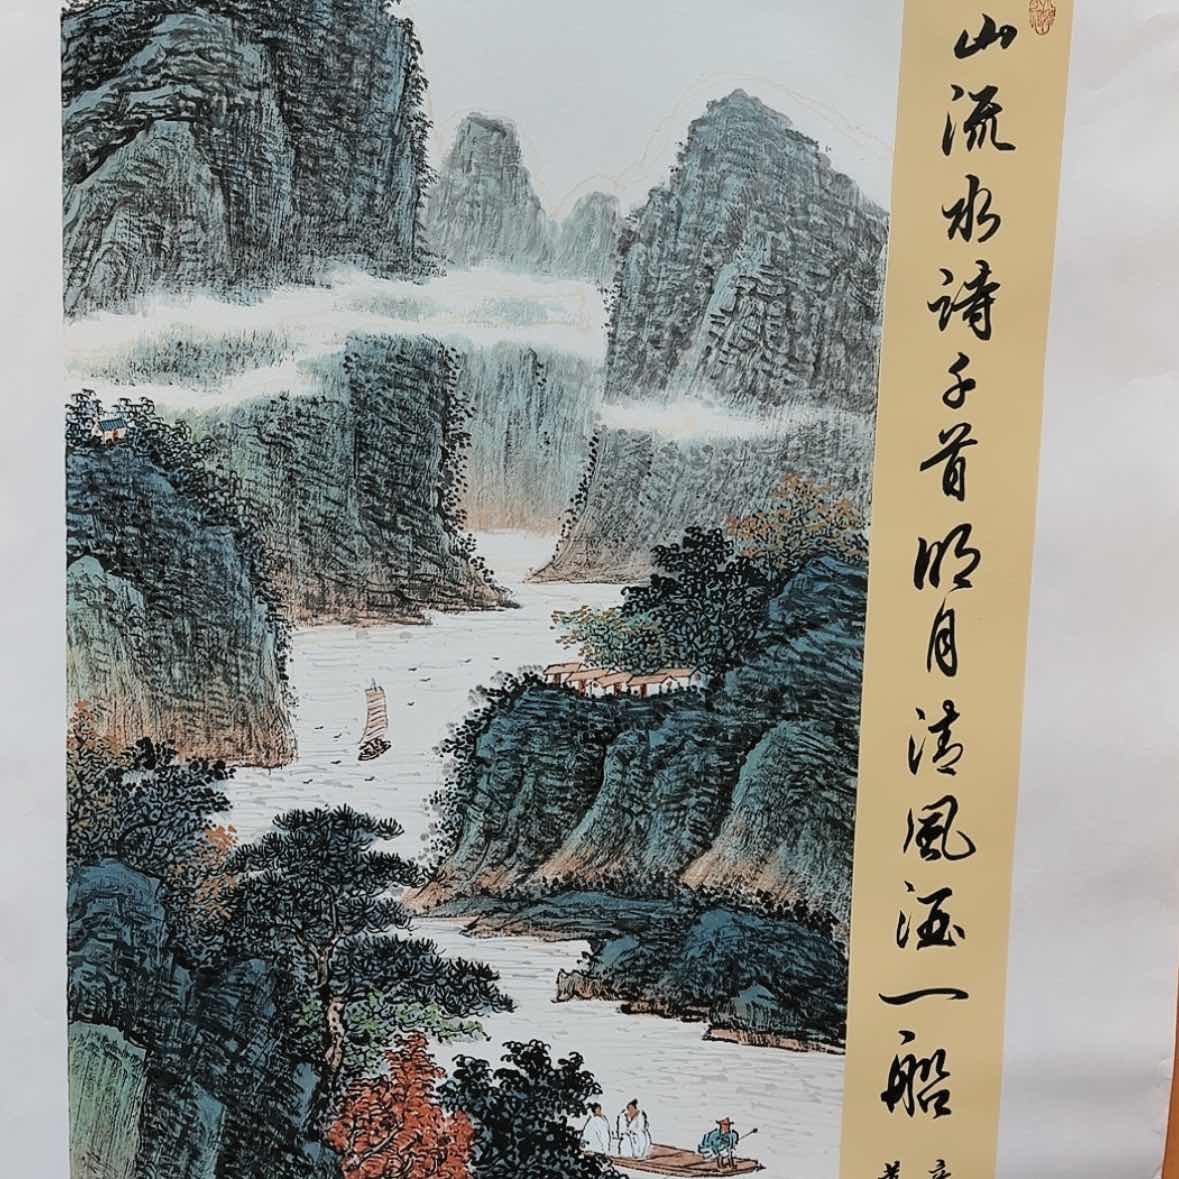 山流水詩千首明月清風酒一船